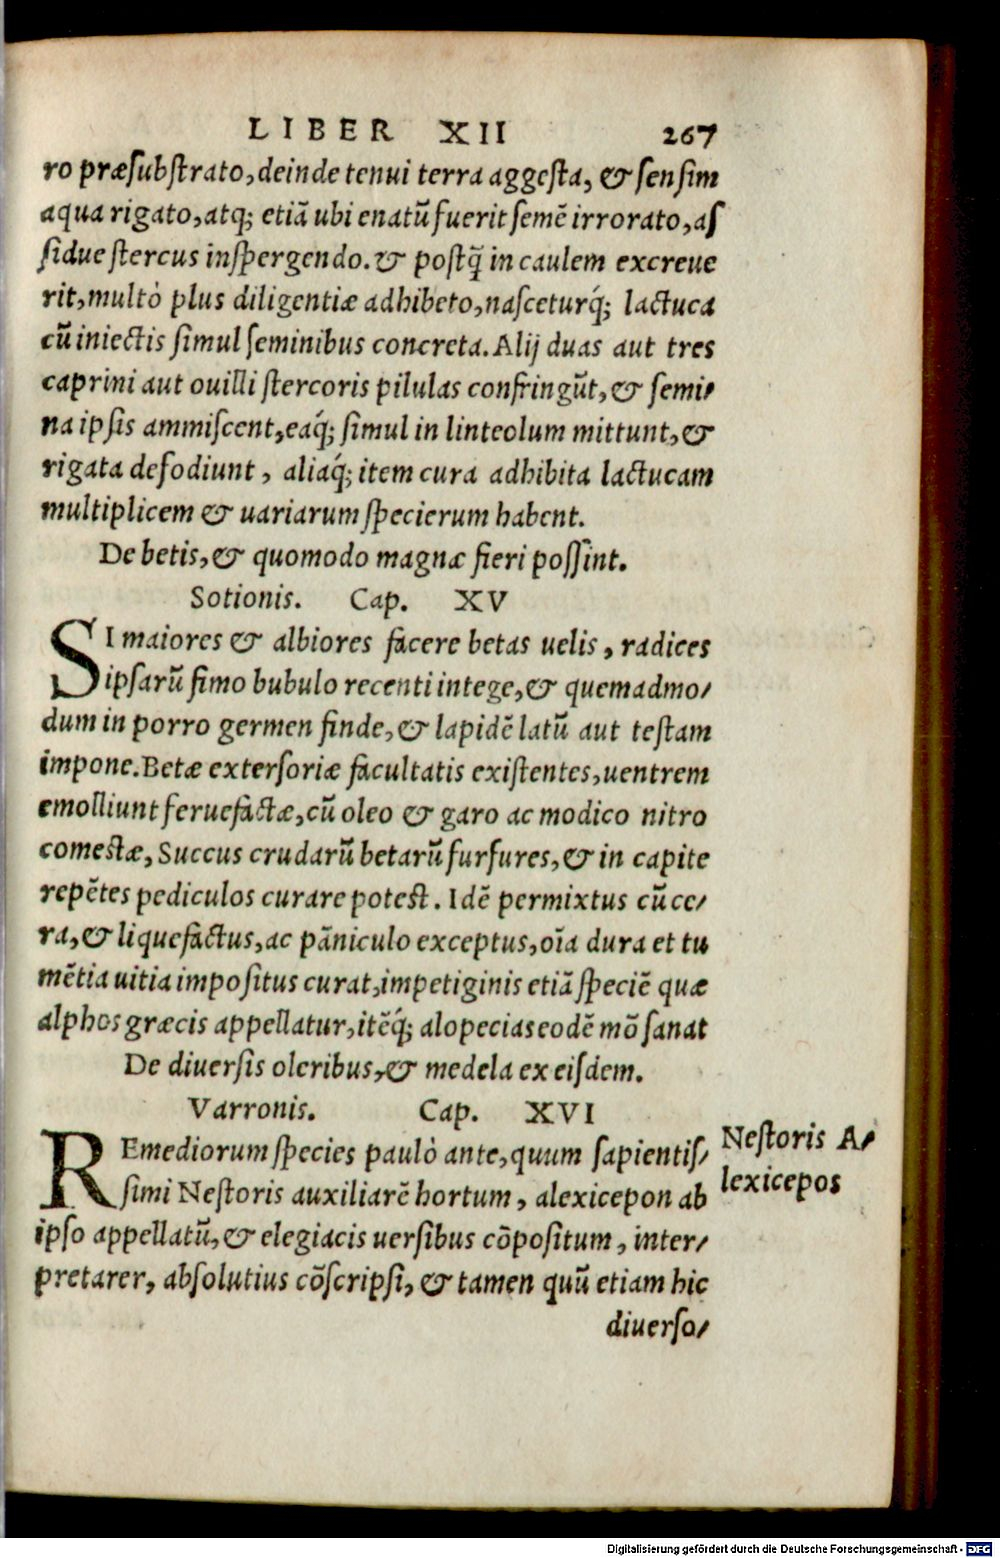 LIBER XII 267
ro præsubstrato, deinde tenui terra aggesta, & sensim
aqua rigato, atq; etiã ubi enatũ fuerit semẽ irrorato, as
sidue stercus inspergendo. & postq̃ in caulem excreue
rit, multò plus diligentiæ adhibeto, nasceturq́; lactuca
cũ iniectis simul seminibus concreta. Alij duas aut tres
caprini aut ouilli stercoris pilulas confringũt, & semi/
na ipsis ammiscent, eaq́; simul in linteolum mittunt, &
rigata defodiunt, aliaq́; item cura adhibita lactucam
multiplicem & uariarum specierum habent.
De betis, & quomodo magnæ fieri possint.
Sotionis. Cap. XV
SI maiores & albiores facere betas uelis, radices
ipsarũ fimo bubulo recenti intege, & quemadmo/
dum in porro germen finde, & lapidẽ latũ aut testam
impone. Betæ extersoriæ facultatis existentes, uentrem
emolliunt feruefactæ, cũ oleo & garo ac modico nitro
comestæ, Succus crudarũ betarũ furfures, & in capite
repẽtes pediculos curare potest. Idẽ permixtus cũ ce/
ra, & liquefactus, ac pãniculo exceptus, oĩa dura et tu
mẽtia uitia impositus curat, impetiginis etiã speciẽ quæ
alphos græcis appellatur, itẽq́; alopecias eodẽ mõ sanat
De diuersis oleribus, & medela ex eisdem.
Varronis. Cap. XVI
REmediorum species paulò ante, quum sapientis/
simi Nestoris auxiliarẽ hortum, alexicepon ab
ipso appellatũ, & elegiacis uersibus cõpositum, inter/
pretarer, absolutius cõscripsi, & tamen quũ etiam hic
diuerso/
Nestoris A/
lexicepos
Digitalisierung gefördert durch die Deutsche Forschungsgemeinschaft - DFG